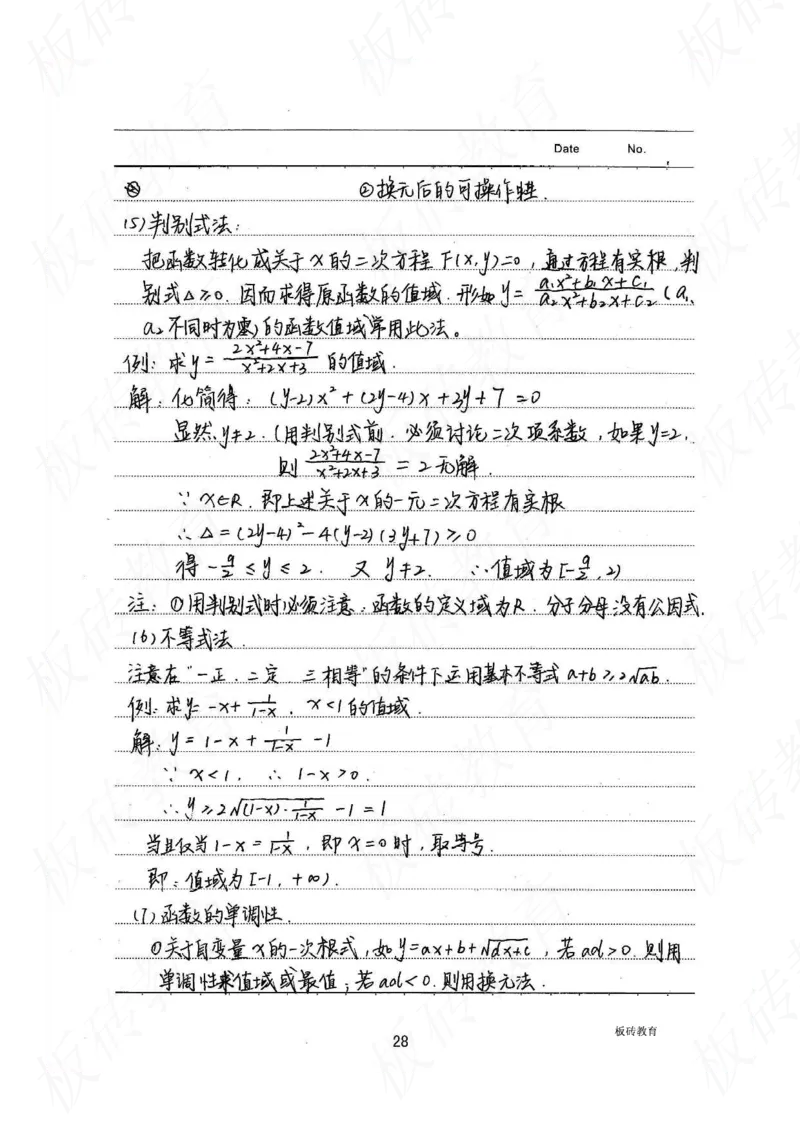 Date No.
② 换元后的可操作性.
(5) 判别式法:
把函数转化成关于x的二次方程 F(x,y)=0, 通过方程有实根, 判
别式△≥0. 因而求得原函数的值域. 形如 y = (a₁x²+b₁x+c₁)/(a₂x²+b₂x+c₂) (a₁、
a₂ 不同时为零) 的函数值域常用此法。
例: 求 y = (2x²+4x-7)/(x²+2x+3) 的值域.
解: 化简得: (y-2)x² + (2y-4)x + 3y + 7 = 0
显然, y≠2. (用判别式前. 必须讨论二次项系数, 如果y=2,
则 (2x²+4x-7)/(x²+2x+3) = 2 无解.
∵ x∈R. 即上述关于x的一元二次方程有实根
∴ △ = (2y-4)² - 4(y-2)(3y+7) ≥ 0
得 -9/2 ≤ y ≤ 2. 又 y≠2. ∴ 值域为 [-9/2, 2)
注: ① 用判别式时必须注意: 函数的定义域为R. 分子分母没有公因式.
(6) 不等式法.
注意在"一正. 二定 三相等"的条件下运用基本不等式 a+b ≥ 2√ab.
例: 求y= -x + 1/(1-x). x<1的值域.
解: y = 1-x + 1/(1-x) - 1
∵ x<1. ∴ 1-x>0.
∴ y ≥ 2√((1-x)·1/(1-x)) - 1 = 1
当且仅当 1-x = 1/(1-x), 即 x=0 时, 取等号.
即: 值域为 [-1, +∞).
(7) 函数的单调性.
① 关于自变量x的一次根式, 如y=ax+b+√(dx+c), 若 ad>0. 则用
单调性求值域或最值; 若 ad<0. 则用换元法.
板砖教育
28